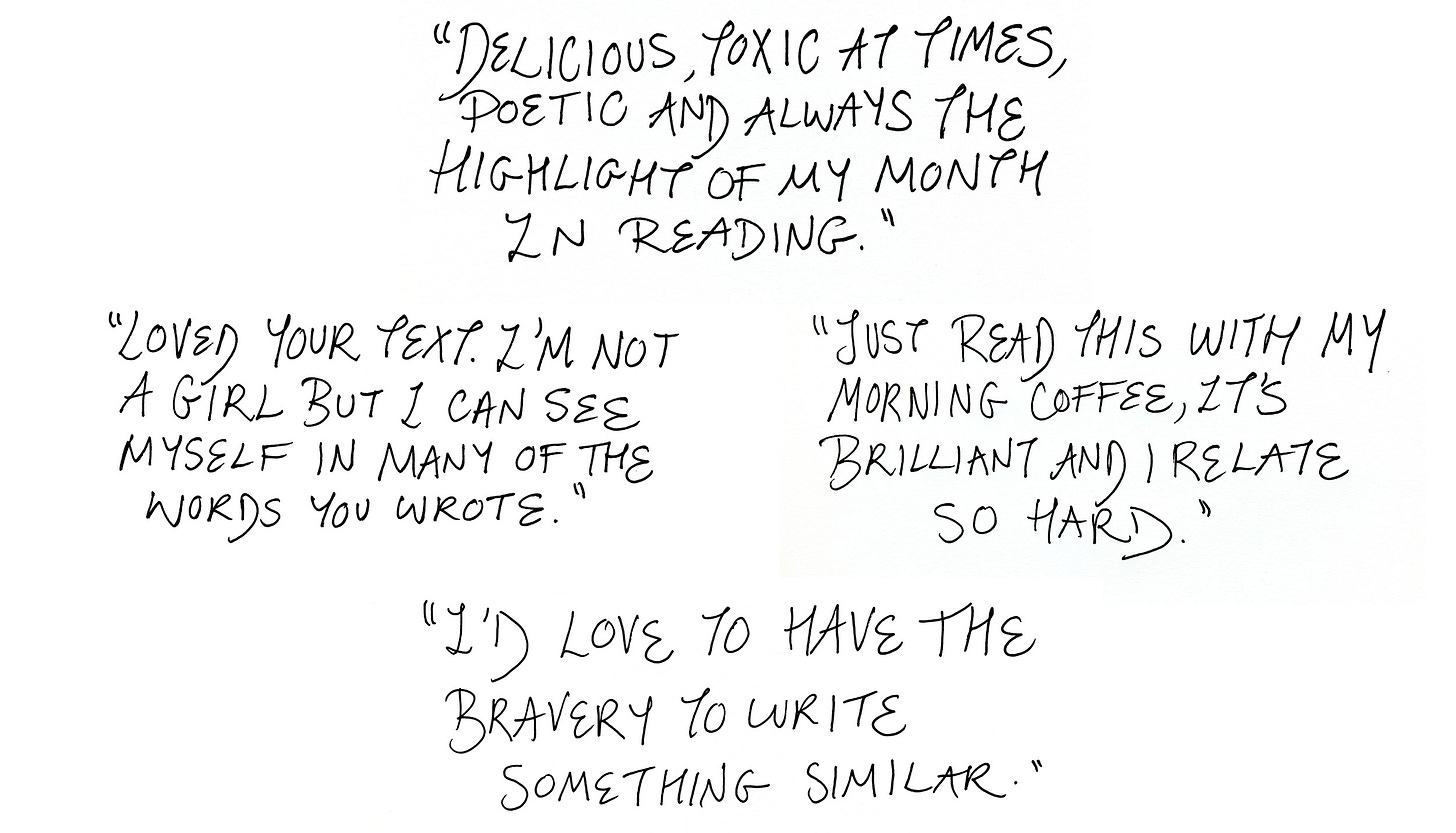 "DELICIOUS, TOXIC AT TIMES,
POETIC AND ALWAYS THE
HIGHLIGHT OF MY MONTH
IN READING."
"LOVED YOUR TEXT. I'M NOT
A GIRL BUT I CAN SEE
MYSELF IN MANY OF THE
WORDS YOU WROTE."
"JUST READ THIS WITH MY
MORNING COFFEE, IT'S
BRILLIANT AND I RELATE
SO HARD."
"I'D LOVE TO HAVE THE
BRAVERY TO WRITE
SOMETHING SIMILAR."